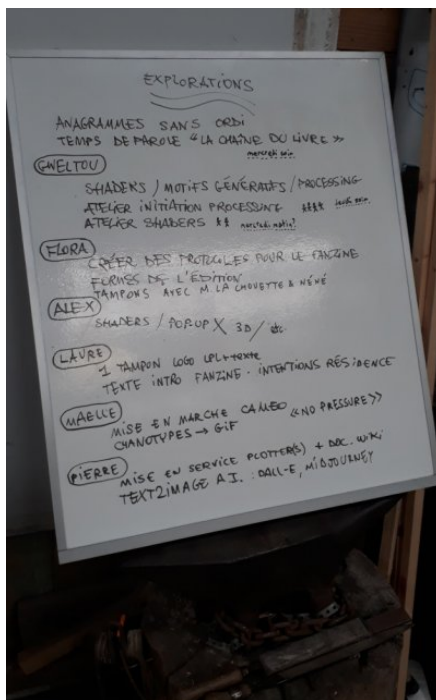 EXPLORATIONS
ANAGRAMMES SANS ORDI
TEMPS DE PAROLE "LA CHAÎNE DU LIVRE"
mercredi soir
GWELTOU
SHADERS / MOTIFS GÉNÉRATIFS / PROCESSING
ATELIER INITIATION PROCESSING **** jeudi soir
ATELIER SHADERS ** mercredi matin
FLORA
CRÉER DES PROTOCOLES POUR LE FANZINE
FORMES DE L'ÉDITION
TAMPONS AVEC M. LA CHOUETTE & NÉNÉ
ALEX
SHADERS / POP-UP X 3D / etc
LAURE
1 TAMPON LOGO LPL + texte
TEXTE INTRO FANZINE - INTENTIONS RÉSIDENCE
MAELLE
MISE EN MARCHE CAMEO «NO PRESSURE»
CYANOTYPES → GIF
PIERRE
MISE EN SERVICE PLOTTER(S) + DOC. WIKI
TEXT2IMAGE A.I. : DALL-E, MIDJOURNEY